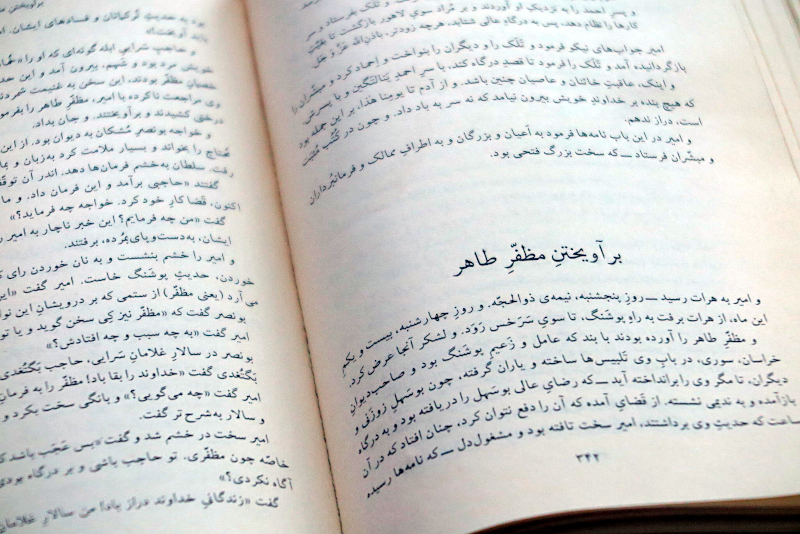 و پسرِ احمد را به نزدیکِ او آوردند و بر مُرادِ سویِ لاهور بازگشت تا بقیّتِ
کارها را نظام دهد، پس به درگاهِ عالی شتابد، هرچه زودتر، باذنِ‌الله عَزَّ وَ جَل
امیر جواب‌های نیکو فرمود و تَلَک را و دیگران را بنواخت و اِحماد کرد و مبشّران را
بازگردانیده آمد و تَلَک را فرمود تا قصدِ درگاه کند، با سرِ احمدِ یَنالتَگین و با پسرش.
و اینک، عاقبتِ خائنان و عاصیان چنین باشد. و از آدم تا یومِنا هذا، بر این جمله بود
که هیچ بنده بر خداوندِ خویش بیرون نیامد که نه سر به باد داد. و چون در کُتُب مُثبَت
است، دراز ندهم.
و امیر در این باب نامه‌ها فرمود به اَعیان و بزرگان و به اطرافِ ممالک و فرمانبُرداران
و مبشّران فرستاد — که سخت بزرگ فتحی بود.
بر آویختنِ مظفّرِ طاهر
و امیر به هرات رسید — روزِ پنجشنبه، نیمه‌ی ذوالحجّه. و روزِ چهارشنبه، بیست و یکمِ
این ماه، از هرات برفت به راهِ پوشَنگ، تا سویِ سَرَخس رَوَد. و لشکر آنجا عرض کرد.
و مظفّرِ طاهر را آورده بودند با بند که عامل و زَعیمِ پوشَنگ بود و صاحب‌دیوانِ
خراسان، سوری، در بابِ وی تَلبیس‌ها ساخته و یاران گرفته، چون بوسَهلِ زوزَنی و
دیگران، تا مگر وی را برانداخته آید — که رضایِ عالی بوسَهل را دریافته بود و به درگاه
بازآمده و به ندیمی نشسته. از قضایِ آمده که آن را دفع نتوان کرد، چنان افتاد که در آن
ساعت که حدیثِ وی برداشتند، امیر سخت تافته بود و مشغول‌دل — که نامه‌ها رسیده
۳۴۲
بود به حدیثِ تُرکمانان و فسادهای ایشان.
و حاجبِ سَرایی ابله گونه‌ای که او را
خویش مرد بود و شهم، بیرون آمد و این
خصمانِ مظفّر بودند، این سخن به غنیمت شمردند
وی مراجعت ناکرده با امیر، مظفّرِ طاهر را بفرمود
درختی کشیدند و برآویختند. و جان بداد.
و خواجه بونصرِ مُشکان به دیوان بود. از این
را بخواند و بسیار ملامت کرد به‌زبان و
رفت. سلطان به‌خشم فرمان‌ها دهد. اندر آن
گفتند «حاجبی برآمد و این فرمان داد. و ما
اکنون، قضا کارِ خود کرد. خواجه چه فرماید؟»
گفت «من چه فرمایم؟ این خبر ناچار به امیر
ایشان، به‌دست‌وپای‌مُرده، برفتند.
و امیر را خشم بنشست و به نان خوردن رای
خوردن، حدیثِ پوشَنگ خاست. امیر گفت
می آرد (یعنی مظفّر) از ستمی که بر درویشانِ این
بونصر گفت که «مظفّر نیز کِی سخن گوید و یا
امیر گفت «به چه سبب و چه افتادش؟»
بونصر در سالارِ غلامانِ سَرایی، حاجب بَگتُغدی
بَگتُغدی گفت «خداوند را بقا باد! مظفّر را به فرمانِ
امیر گفت «چه می‌گویی؟» و بانگی سخت بکرد و
و سالار به‌شرح‌تر گفت.
امیر سخت در خشم شد و گفت «بس عَجَب باشد
خاصّه چون مظفّری. تو حاجب باشی و بر درگاه
آگاه نکردی؟»
گفت «زندگانیِ خداوند دراز باد! من سالارِ غلامانِ